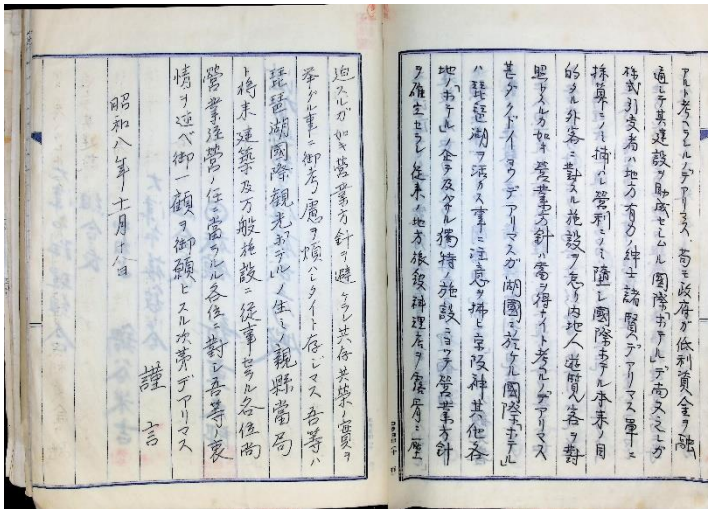 アルト考ヘラレルノデアリマス、苟モ政府ガ低利資金ヲ融
通シテ其建設ヲ助成セシムル國際「ホテル」デ尚又之レガ
株式引受者ハ地方有力ノ紳士諸賢ノデアリマス單ニ
採算ニノミ捕ハレ營利ニノミ隨シ國際ホテル本来ノ目
的タル外客ニ對スル施設ヲ怠リ内地人遊覧客ヲ對
照トスルガ如キ營業方針ハ當ヲ得ナイト考フルノデアリマス
甚ダクドイヨウデアリマスガ湖國ニ於ケル國際「ホテル」
ハ琵琶湖ヲ活カス事ニ注意ヲ拂ヒ京阪神其他各
地ノ「ホテル」ノ企テ及バザル獨特ノ施設ニヨツテ營業方針
ヲ確立セラレ従来ノ地方旅館料理店ヲ露骨ニ壓
迫スルガ如キ營業方針ヲ避ケラレ共存共榮ノ實ヲ
挙グル事ニ御考慮ヲ煩ハシタイト存ジマス吾等ハ
琵琶湖國際観光ホテルノ生ミノ親縣當局
ト将来建築及万般施設ニ従事セラル各位尚
營業経營ノ任ニ當ラルル各位ニ對シ吾等衷
情ヲ述ベ御一顧ヲ御願ヒスル次第デアリマス
謹言
昭和八年十一月十八日